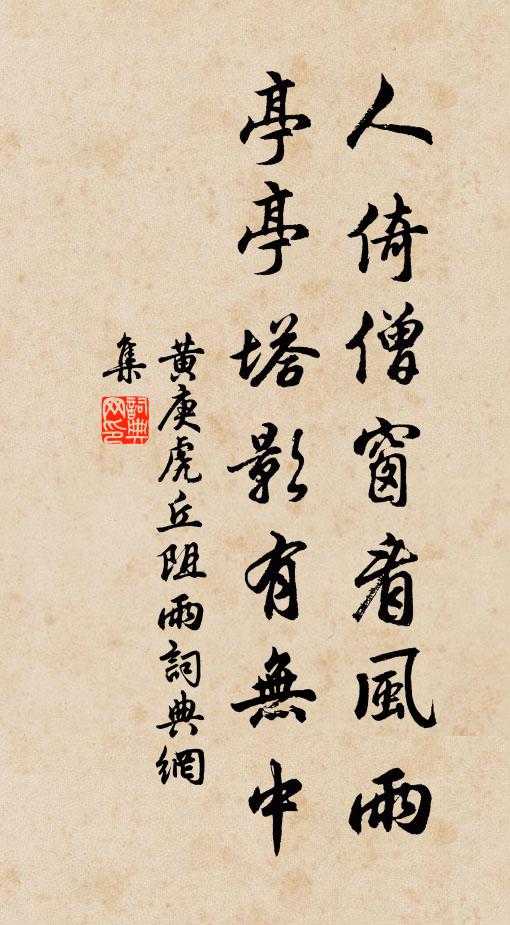 人倚僧窗看風雨
亭亭塔影有無中
黃庚虎丘阻雨詞典網
集
詞典网印